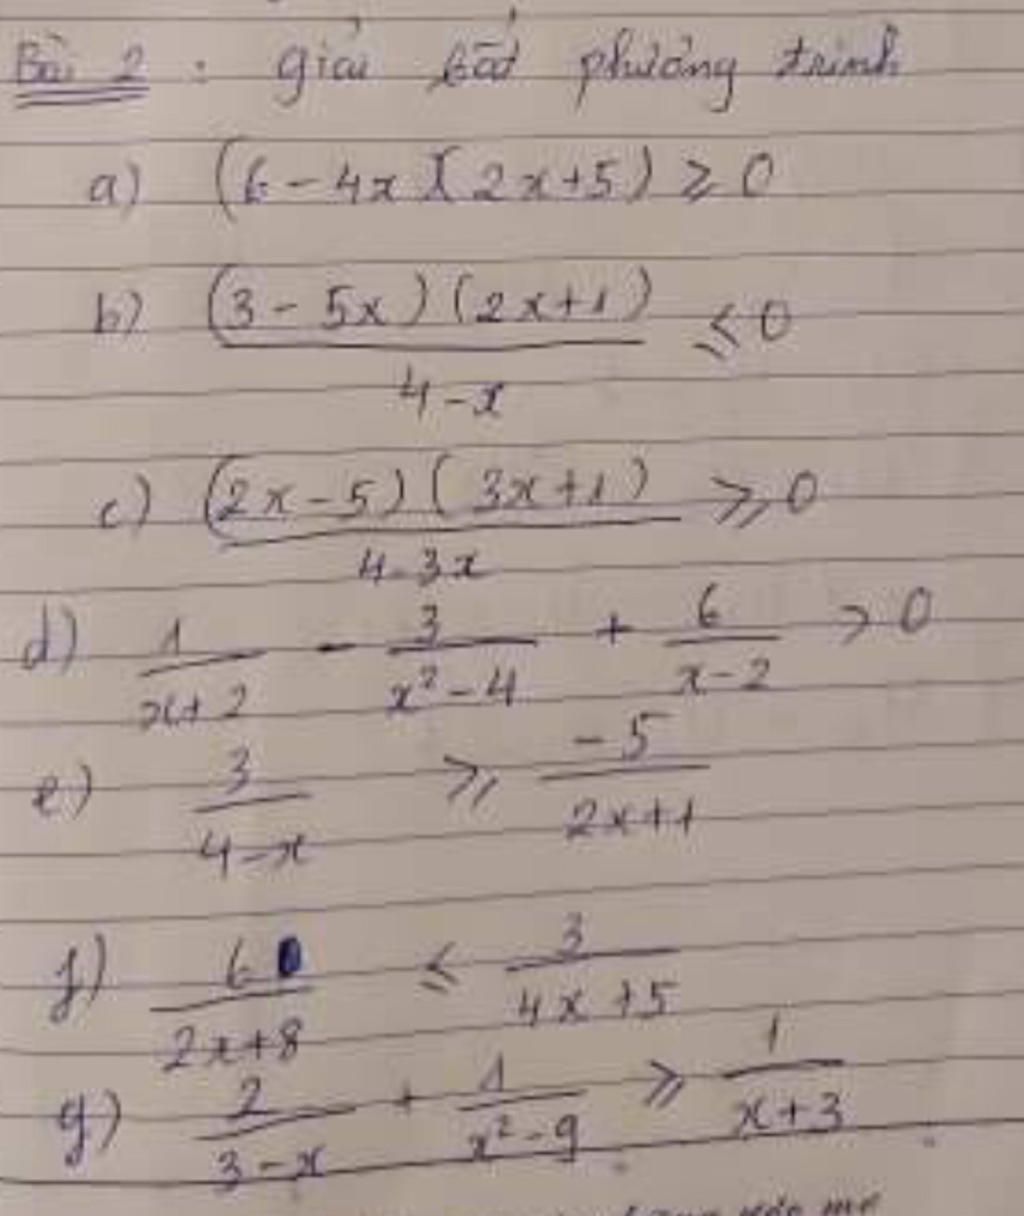 Bài 2 : giải bất phương trình
a) (6 - 4x)(2x+5) ≥ 0
b) (3 - 5x)(2x+1) / 4-x ≤ 0
c) (2x-5)(3x+1) / 4-3x ≥ 0
d) 1 / x+2 - 3 / x²-4 + 6 / x-2 > 0
e) 3 / 4-x ≥ -5 / 2x+1
f) 6 / 2x+8 ≤ 3 / 4x+5
g) 2 / 3-x + 1 / x²-9 ≥ 1 / x+3